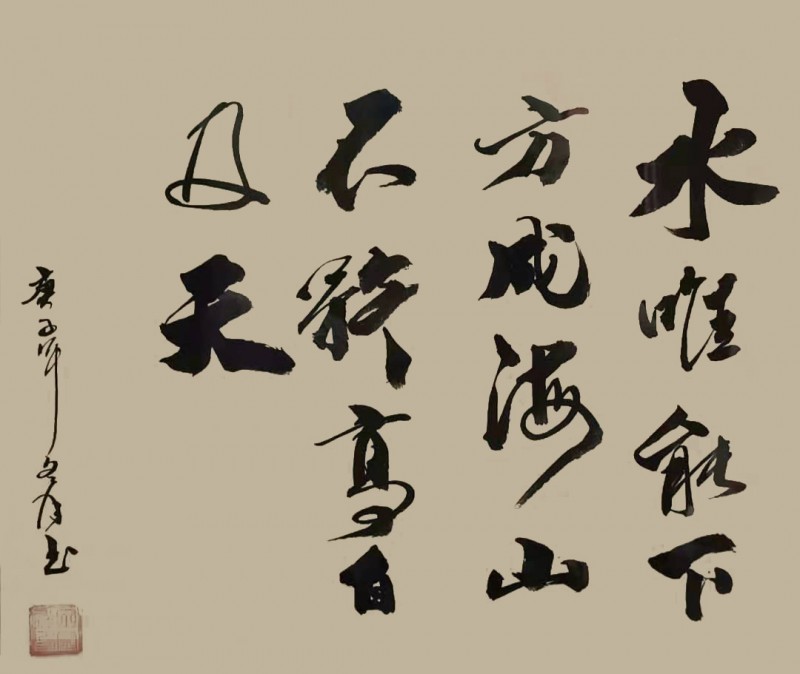 水唯能下
方成海山
不矜高自
及天
庚子年月书